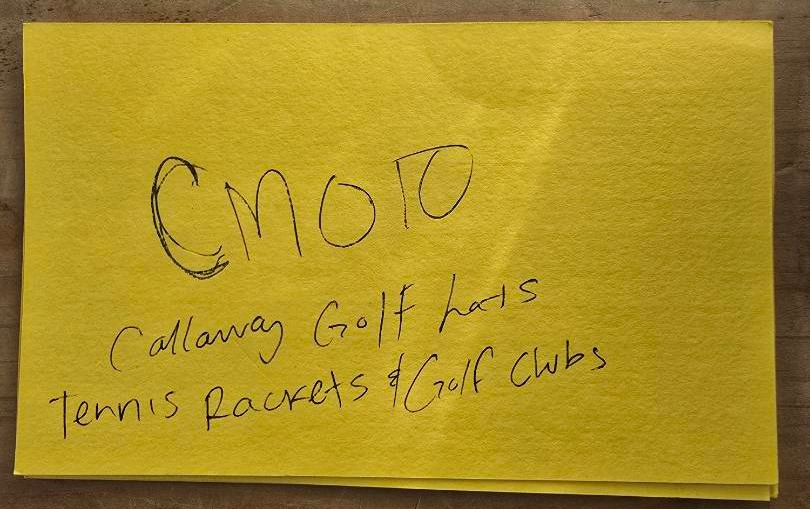 CMOTO
Callaway Golf hats
Tennis Rackets & Golf Clubs